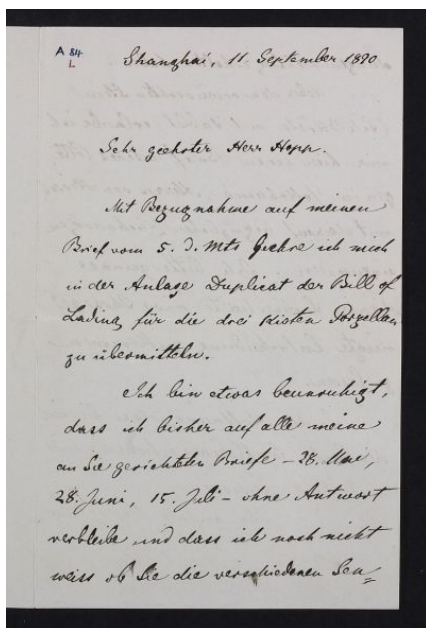 A 84
L
Shanghai, 11. September 1890
Sehr geehrter Herr Hopp.
Mit Bezugnahme auf meinen
Brief vom 5. d. Mts beehre ich mich
in der Anlage Duplicat der Bill of
Lading für die drei Kisten Porzellan
zu übermitteln.
Ich bin etwas beunruhigt,
dass ich bisher auf alle meine
an Sie gerichteten Briefe – 28. Mai,
28. Juni, 15. Juli – ohne Antwort
verbleibe und dass ich noch nicht
weiss ob Sie die verschiedenen Sen=